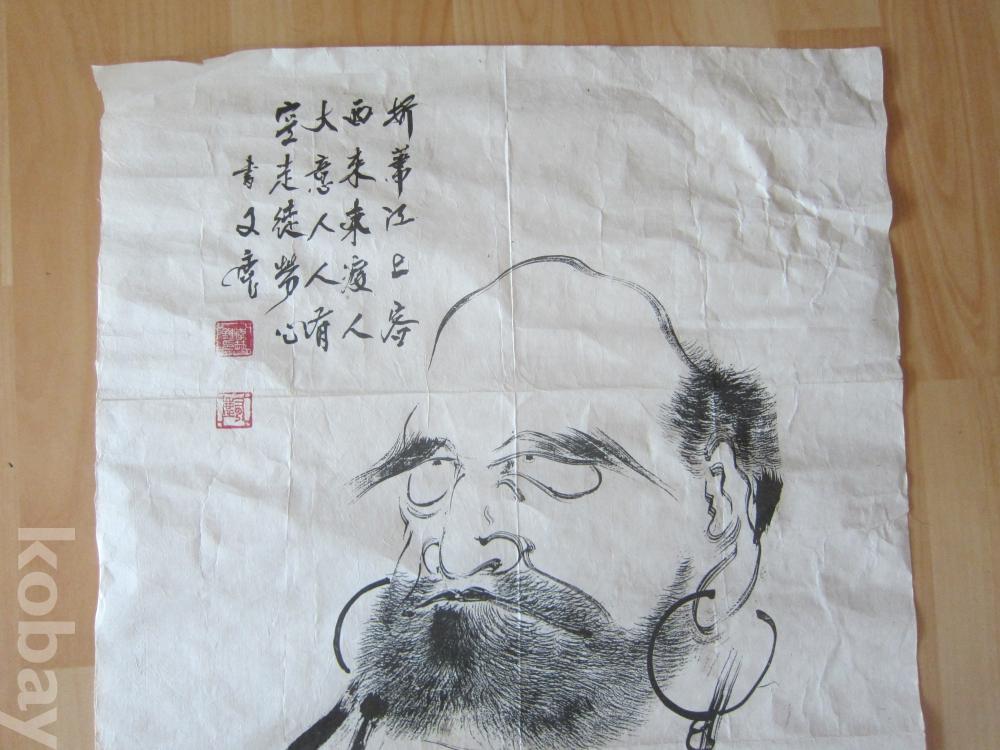 折葦江上客
西来来渡人
大意人人有
空走徒勞心
書文
kobay